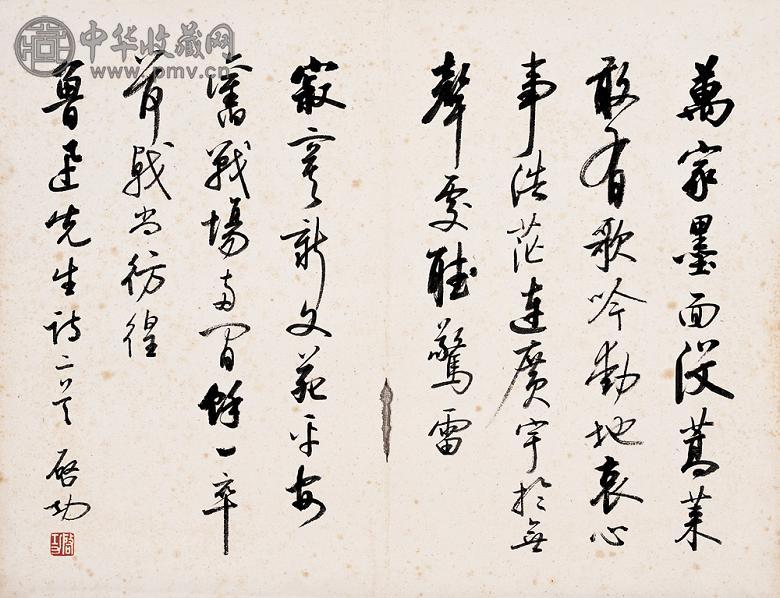 萬家墨面沒蒿萊
敢有歌吟動地哀心
事浩茫連廣宇於無
聲處聽驚雷
寂寞新文苑平安
舊戰場兩間餘一卒
荷戟尚彷徨
魯迅先生詩二首 启功
中华收藏网
www.pmv.cn